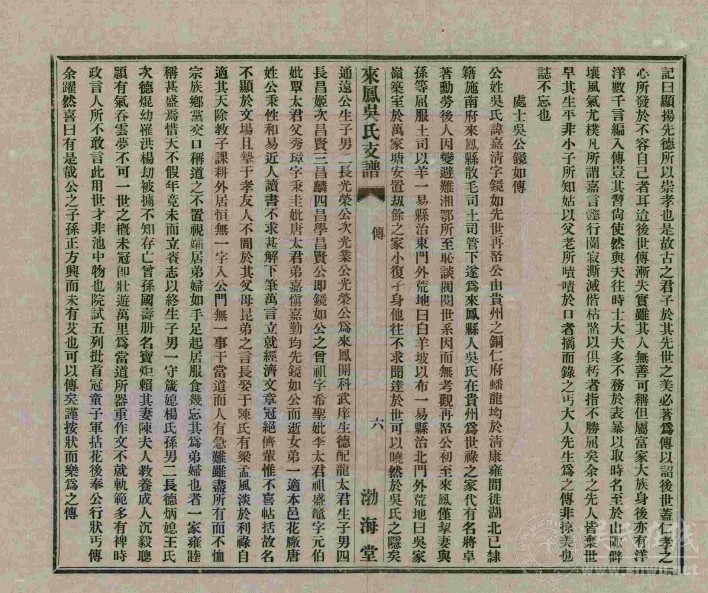 記曰顯揚先德所以崇孝也是故古之君子於其先世之美必著為傳以詔後世蓋仁孝之
心所發於不容自己者耳迨後世傳漸失實雖其人無善可稱但屬富家大族身後亦有洋
洋數千言編入傳豈其習尚使然與夫往時士大夫多不務於表暴以取時名至於山陬僻
壤風氣尤樸凡所謂嘉言懿行闃寂漸滅偕枯骴以俱朽者指不勝屈矣余之先人皆棄世
早其生平非小子所知姑以父老所嘖嘖於口者摘而錄之丐大人先生為之傳非掠美也
誌不忘也
處士吳公鏡如傳
公姓吳氏諱嘉清字鏡如先世再榒公由貴州之銅仁府蟠龍均於清康雍間徙湖北已隸
籍施南府來鳳縣散毛司土司管下遂為來鳳縣人吳氏在貴州為世祿之家代有名將卓
著勳勞後人因變避難湘鄂所至恥談閥閱世系因而無考觀再榒公初至來鳳僅挈妻與
孫等屈服土司以羊一易縣治東門外荒地曰白羊坡以布一易縣治北門外荒地曰吳家
嶺築室於萬家塘安置刼餘之家小復孑身他往不求聞達於世可以曉然於吳氏之隱矣
來鳳吳氏支譜
傳
六
渤海堂
通遠公生子男二長光榮公次光業公光榮公為來鳳開科武庠生德配龍太君生子男四
長昌姬次昌賢三昌麟四昌學昌賢公即鏡如公之曾祖字希聖妣李太君祖盛蘢字元伯
妣覃太君父秀璋字秉圭妣唐太君弟嘉懽嘉勤均先鏡如公而逝女弟一適本邑花廠唐
姓公秉性和易近人讀書不求甚解下筆萬言立就經濟文章冠絕儕輩惟不喜帖括故名
不顯於文場且摯于孝友人不間於其父母昆弟之言長娶于陳氏有梁孟風淡於利祿自
適其天除教子課耕外居恒無一字入公門無一事干當道而人有急難雖盡所有而不恤
宗族鄉黨交口稱道之不置視孀居弟婦如手足起居服食幾忘其為弟婦也者一家雍睦
稱甚盛焉惜天不假年竟未而立賫志以終生子男一守箴媳楊氏孫男二長德炳媳王氏
次德焜幼罹洪楊刼被擄不知存亡曾孫國壽册名寶炬賴其妻陳夫人教養成人沉毅聰
頴有氣吞雲夢不可一世之概未冠卽壯遊萬里為當道所器重作文不就軌範多有裨時
政言人所不敢言此用世才非池中物也院試五列批首冠童子軍拈花後奉公行狀丐傳
余躍然喜曰有是哉公之子孫正方興而未有艾也可以傳矣謹按狀而樂為之傳
www.cnwu.net